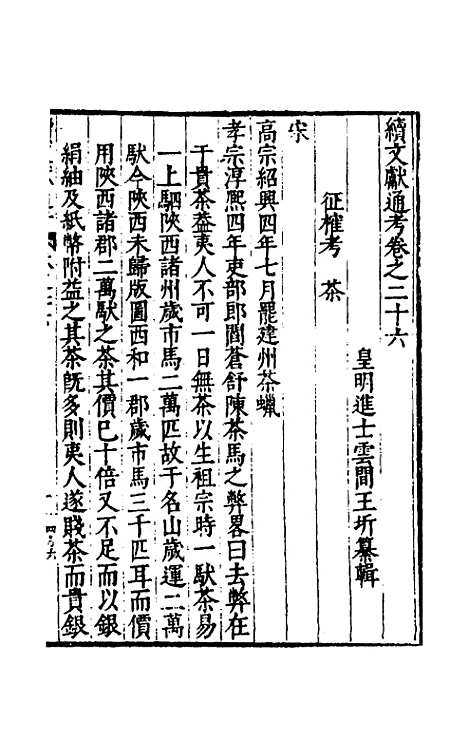 續文獻通考卷之二十六
皇明進士雲間王圻纂輯
征榷考　茶
宋
高宗紹興四年七月罷建州茶蠟
孝宗淳熙四年吏部郎閻蒼舒陳茶馬之弊畧曰去弊在
于貴茶葢夷人不可一日無茶以生祖宗時一馱茶易
一上駟陝西諸州歲市馬二萬匹故于名山歲運二萬
馱今陝西未歸版圖西和一郡歲市馬三千匹耳而價
用陝西諸郡二萬馱之茶其價已十倍又不足而以銀
絹紬及紙幣附益之其茶旣多則夷人遂賤茶而貴銀